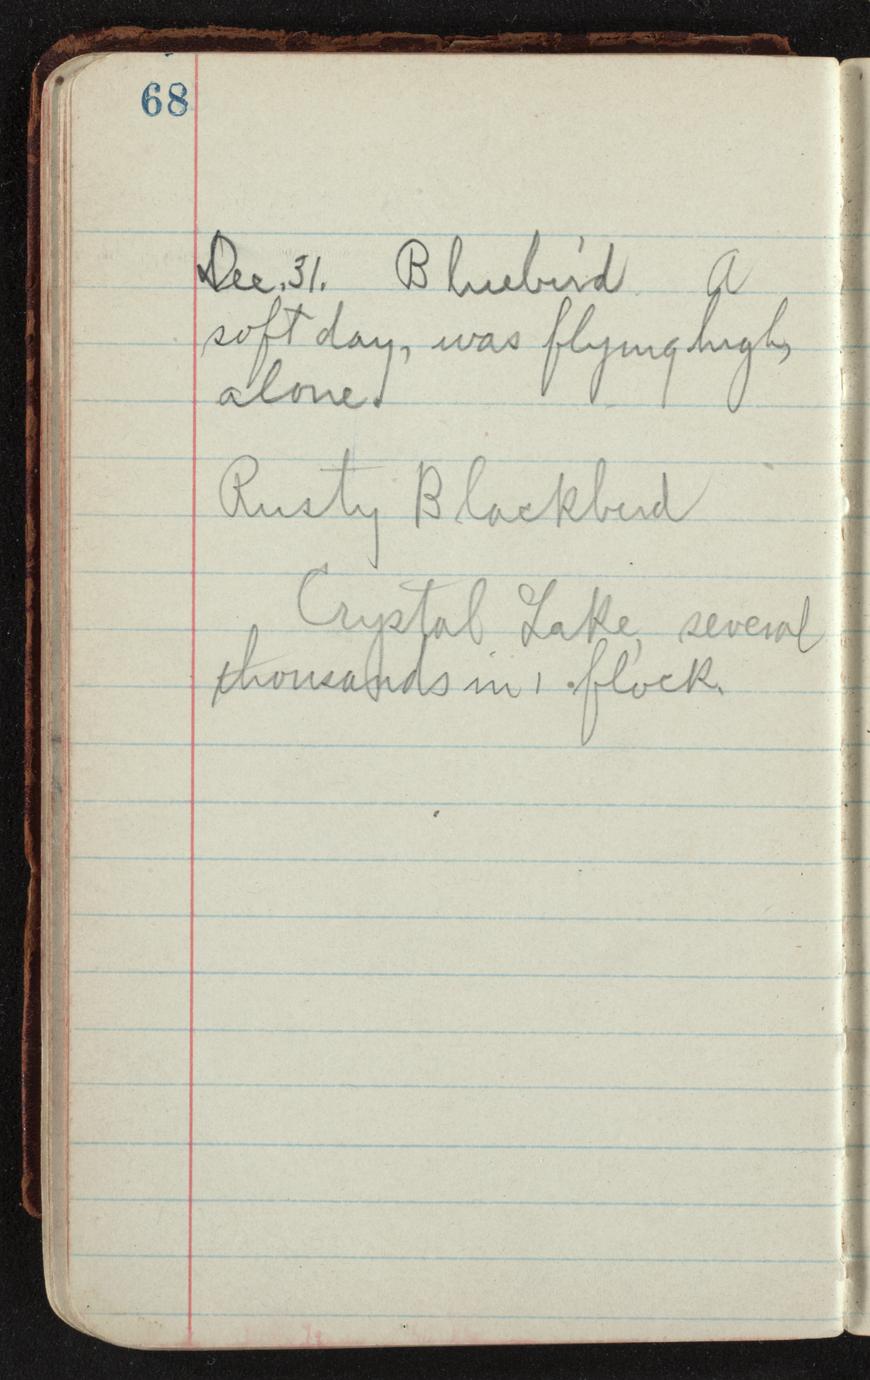 68
Dec. 31. Bluebird A
soft day, was flying high,
alone.
Rusty Blackbird
Crystal Lake, several
thousands in 1 flock.